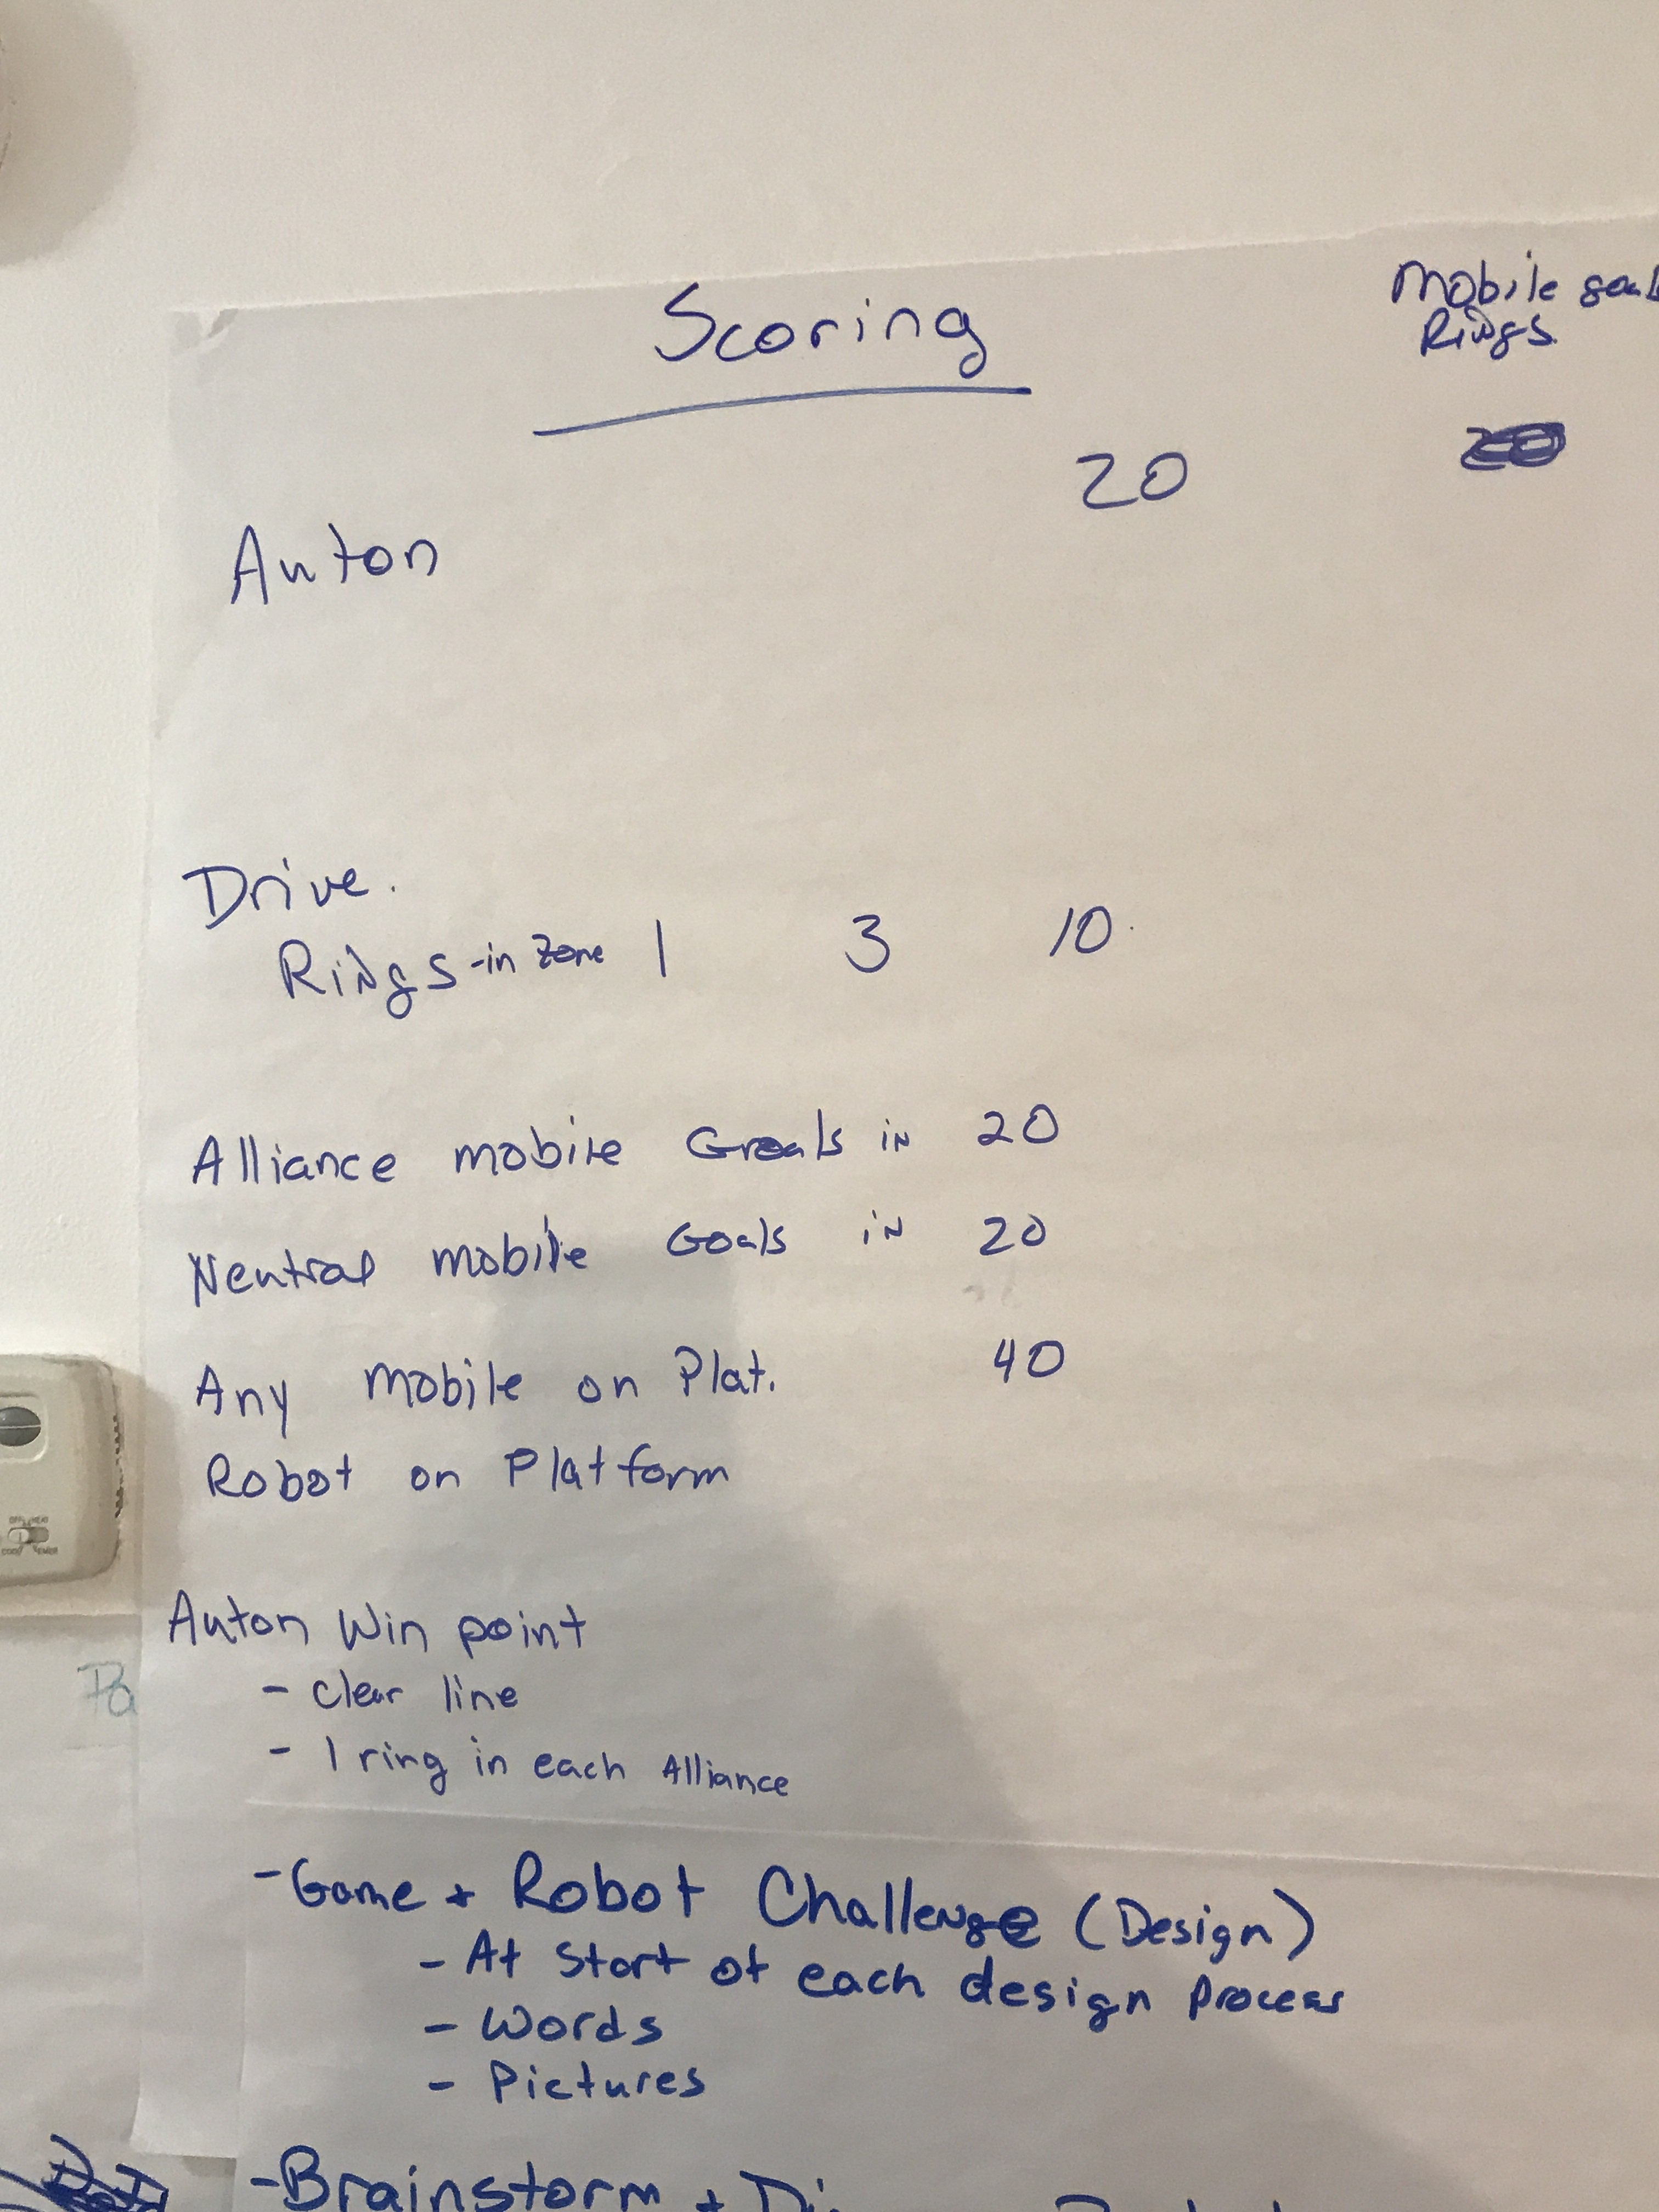 Scoring
Mobile goal
Rings
20
Auton
Drive.
Rings -in zone 1 3 10
Alliance mobile Goals in 20
Neutral mobile Goals in 20
Any mobile on Plat. 40
Robot on Platform
Auton Win point
- clear line
- 1 ring in each Alliance
- Game + Robot Challenge (Design)
- At Start of each design process
- Words
- Pictures
- Brainstorm +